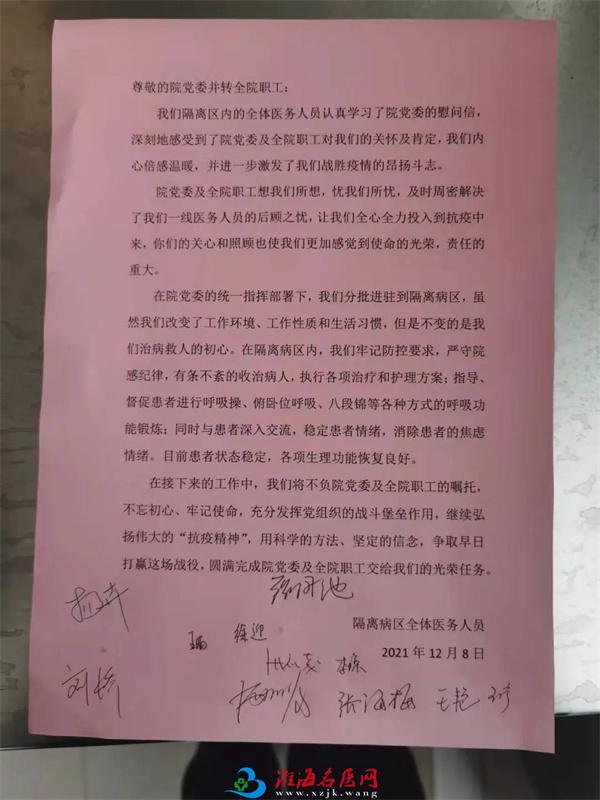 尊敬的院党委并转全院职工：
我们隔离区内的全体医务人员认真学习了院党委的慰问信，
深刻地感受到了院党委及全院职工对我们的关怀及肯定，我们内
心倍感温暖，并进一步激发了我们战胜疫情的昂扬斗志。
院党委及全院职工想我们所想，忧我们所忧，及时周密解决
了我们一线医务人员的后顾之忧，让我们全心全力投入到抗疫中
来，你们的关心和照顾也使我们更加感觉到使命的光荣，责任的
重大。
在院党委的统一指挥部署下，我们分批进驻到隔离病区，虽
然我们改变了工作环境、工作性质和生活习惯，但是不变的是我
们治病救人的初心。在隔离病区内，我们牢记防控要求，严守院
感纪律，有条不紊的收治病人，执行各项治疗和护理方案；指导、
督促患者进行呼吸操、俯卧位呼吸、八段锦等各种方式的呼吸功
能锻炼；同时与患者深入交流，稳定患者情绪，消除患者的焦虑
情绪。目前患者状态稳定，各项生理功能恢复良好。
在接下来的工作中，我们将不负院党委及全院职工的嘱托，
不忘初心、牢记使命，充分发挥党组织的战斗堡垒作用，继续弘
扬伟大的“抗疫精神”，用科学的方法、坚定的信念，争取早日
打赢这场战役，圆满完成院党委及全院职工交给我们的光荣任务。
隔离病区全体医务人员
徐迎
2021 年 12 月 8 日
张海梅
淮海名医网
www.xzjk.wang